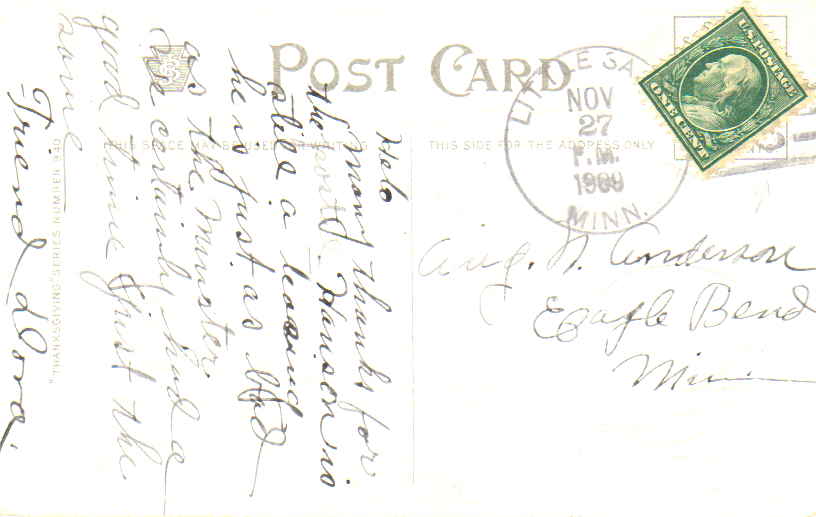 POST CARD
THIS SPACE MAY BE USED FOR WRITING
THIS SIDE FOR THE ADDRESS ONLY
"THANKSGIVING" SERIES NUMBER 940
U.S. POSTAGE
ONE CENT
LITTLE SA
NOV
27
P.M.
1909
MINN.
Aug. N. Anderson
Eagle Bend
Minn
Helo
Many thanks for
the Hanson is
still a
he is just as bad
as the Minster.
We certainly had a
good time just the
same
Friend Dora.